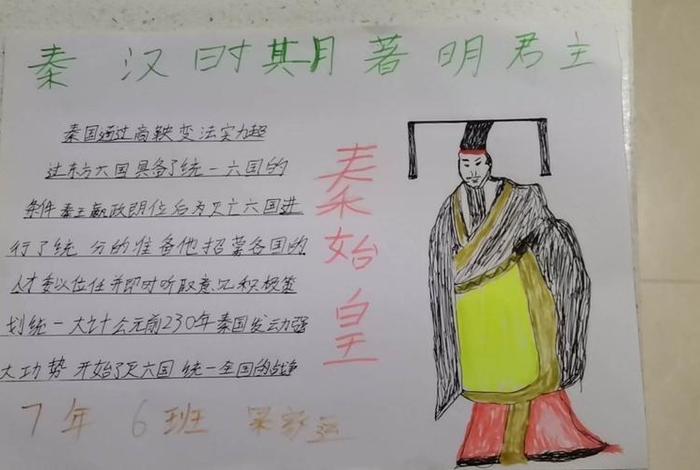 秦汉时期著明君主
秦国通过商鞅变法实力超
过东方六国具备了统一六国的
条件秦王嬴政即位后为灭亡六国进
行了统 分的准备他招募各国的
人才委以位任并即时听取意见积极策
划统一大计公元前230年秦国发动强
大功势 开始了灭六国 统一全国的战争
秦始皇
7年 6班